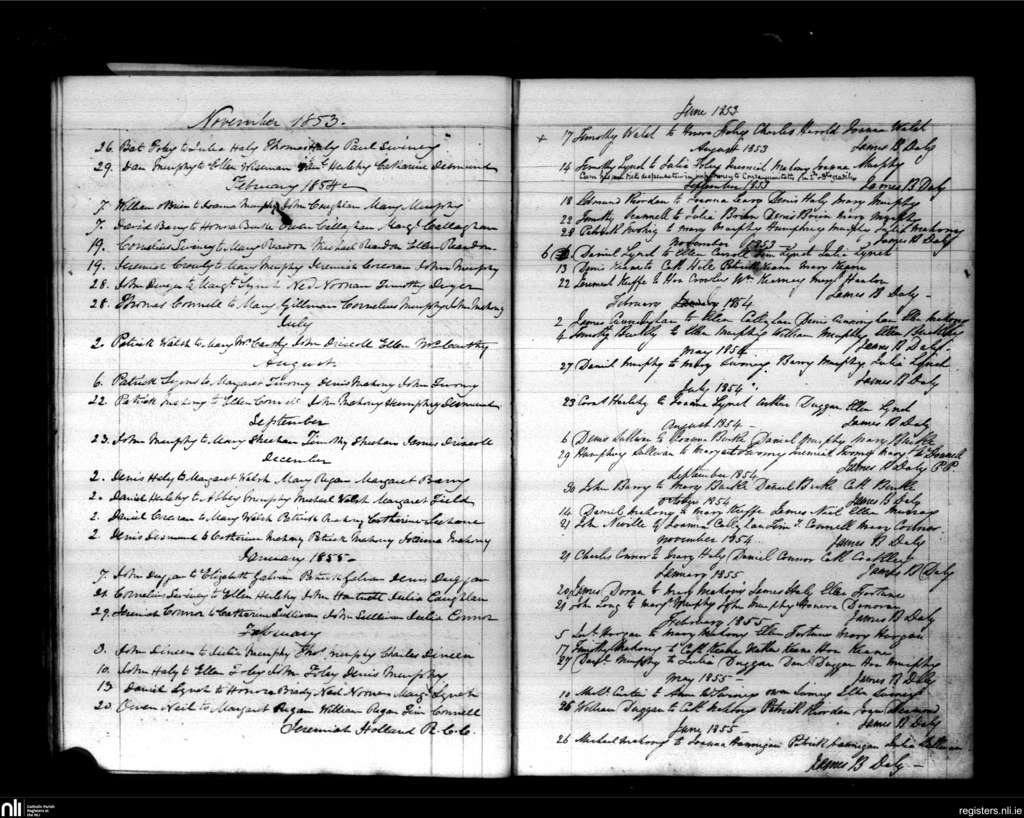 November 1853.
26 Bat Foley to Julia Haly Thomas Haly Paul Swiney
29. Dan Murphy to Ellen Wiseman Helehy Catharine Desmond
February 1854
7. William Brien to Joana Murphy John Coughlan Mary Murphy
7. David Barry to Honora Burke Owen Callaghan Margt Callaghan
19. Cornelius Swiney to Mary Reardon Michael Reardon Ellen Reardon
19. Jeremiah Crowly to Mary Murphy Jeremiah Corcoran John Murphy
28. John Dwyer to Margt Lynch Ned Noonan Timothy Dwyer
28. Thomas Connell to Mary Gillman Cornelius Murphy John Mahony
July
2. Patrick Walsh to Mary McCarthy John Driscoll Ellen McCarthy
August
6. Patrick Lyons to Margaret Twomy Denis Mahony John Twomy
22. Patrick Mahony to Ellen Connell John Mahony Humphry Desmond
September
23. John Murphy to Mary Sheehan Timothy Sheehan James Driscoll
December
2. Denis Haly to Margaret Walsh Mary Regan Margaret Barry
2. Daniel Helehy to Abbey Murphy Michael Walsh Margaret Field
2. Daniel Creean to Mary Walsh Patrick Mahony Catherine
2 Denis Desmond to Catherine Mahony Patrick Mahony Joanna Mahony
January 1855
7. John Duggan to Elizabeth Galvan Patrick Galvan Denis Duggan
21. Cornelius Swiney to Ellen Helehy John Julia Coughlan
29. Jeremiah Connor to Catherine Sullivan John Sullivan Julia Connor
February
3. John Dineen to Julia Murphy Thos Murphy Charles Dineen
10. John Haly to Ellen Foley John Foley Denis Murphy
13 Daniel Lynch to Honora Brady Ned Noonan Margt Lynch
20. Owen Neil to Margaret Regan William Regan Tim Connell
Jeremiah Holland R.C.C.
June 1853
+ 17 Timothy Walsh to Haly Charles Herold Joanna Walsh
August 1853 James B Daly
14 Timothy Lynch to Julia Foley Jeremiah Mahony Joanna Murphy
James B Daly
September 1853
18 Edmund Riordan to Joanna Leary Denis Haly Mary Murphy
22 Timothy to Julia Brien Denis Brien Mary Murphy
28 Patrick to Mary Murphy Humphrey Murphy Julia Mahony
November 1853 James B Daly
6 Daniel Lynch to Ellen Carroll Lynch Julia Lynch
13 Denis Keane to Cath Hale Patrick Keane Mary Keane
22 Jeremiah Keeffe to Hon Crowley Wm Kearney Mary Hanlon
James B Daly
February 1854
2 James Cunningham to Ellen Callaghan Denis Cunningham Ellen
4 Timothy Buckly to Ellen Murphy William Murphy Ellen
James B Daly
May 1854
27 Daniel Murphy to Mary Swiney Barry Murphy Julia Lynch
James B Daly
July 1854
23 Helehy to Joanna Lynch Arthur Duggan Ellen Lynch
James B Daly
August 1854
6 Denis Sullivan to Joanna Burke Daniel Murphy Mary Burke
29 Humphrey Sullivan to Margaret Twomy Jeremiah Twomy Mary
James B Daly P.P.
September 1854
30 John Barry to Mary Burke Daniel Burke Cath Burke
October 1854 James B Daly
14 Daniel Mahony to Mary Keeffe James Neil Ellen Murray
21 John Neville to Joanna Callaghan Connell Mary Connor
November 1854 James B Daly
21 Charles Connor to Mary Haly Daniel Connor Cath Coakley
January 1855 James B Daly
20 James Doran to Mary Mahony James Haly Ellen Fortune
21 John Long to Mary Murphy John Murphy Honora Donovan
February 1855 James B Daly
5 Horgan to Mary Mahony Ellen Fortune Mary Horgan
17 Timothy Mahony to Cath Keane Keane Hon Keane
27 Danl Murphy to Julia Duggan Danl Duggan Hon Murphy
May 1855 James B Daly
10 to Ann Owen Swiney Ellen
26 William Duggan to Cath Mahony Patrick Riordan
June 1855 James B Daly
26 Michael Mahony to Joanna Hannigan Patrick Hannigan Julia
James B Daly
nli
Catholic Parish
Registers at
the NLI
registers.nli.ie